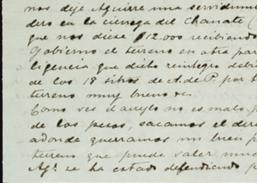 nos deje Aguirre una servidum
dero en la cienega del Chanate (
que nos diese $12.000 recibiendo
Gobierno el terreno en otra par
ligencia que dicho reintegro debi
de los 18 sitios de A. de P. por t
terreno muy bueno &c.
Como ves el arreglo no es malo p
de los pesos, sacamos el dere
adonde queramos un buen p
terreno que puede valer muc
Agre. se ha estado defendiendo p